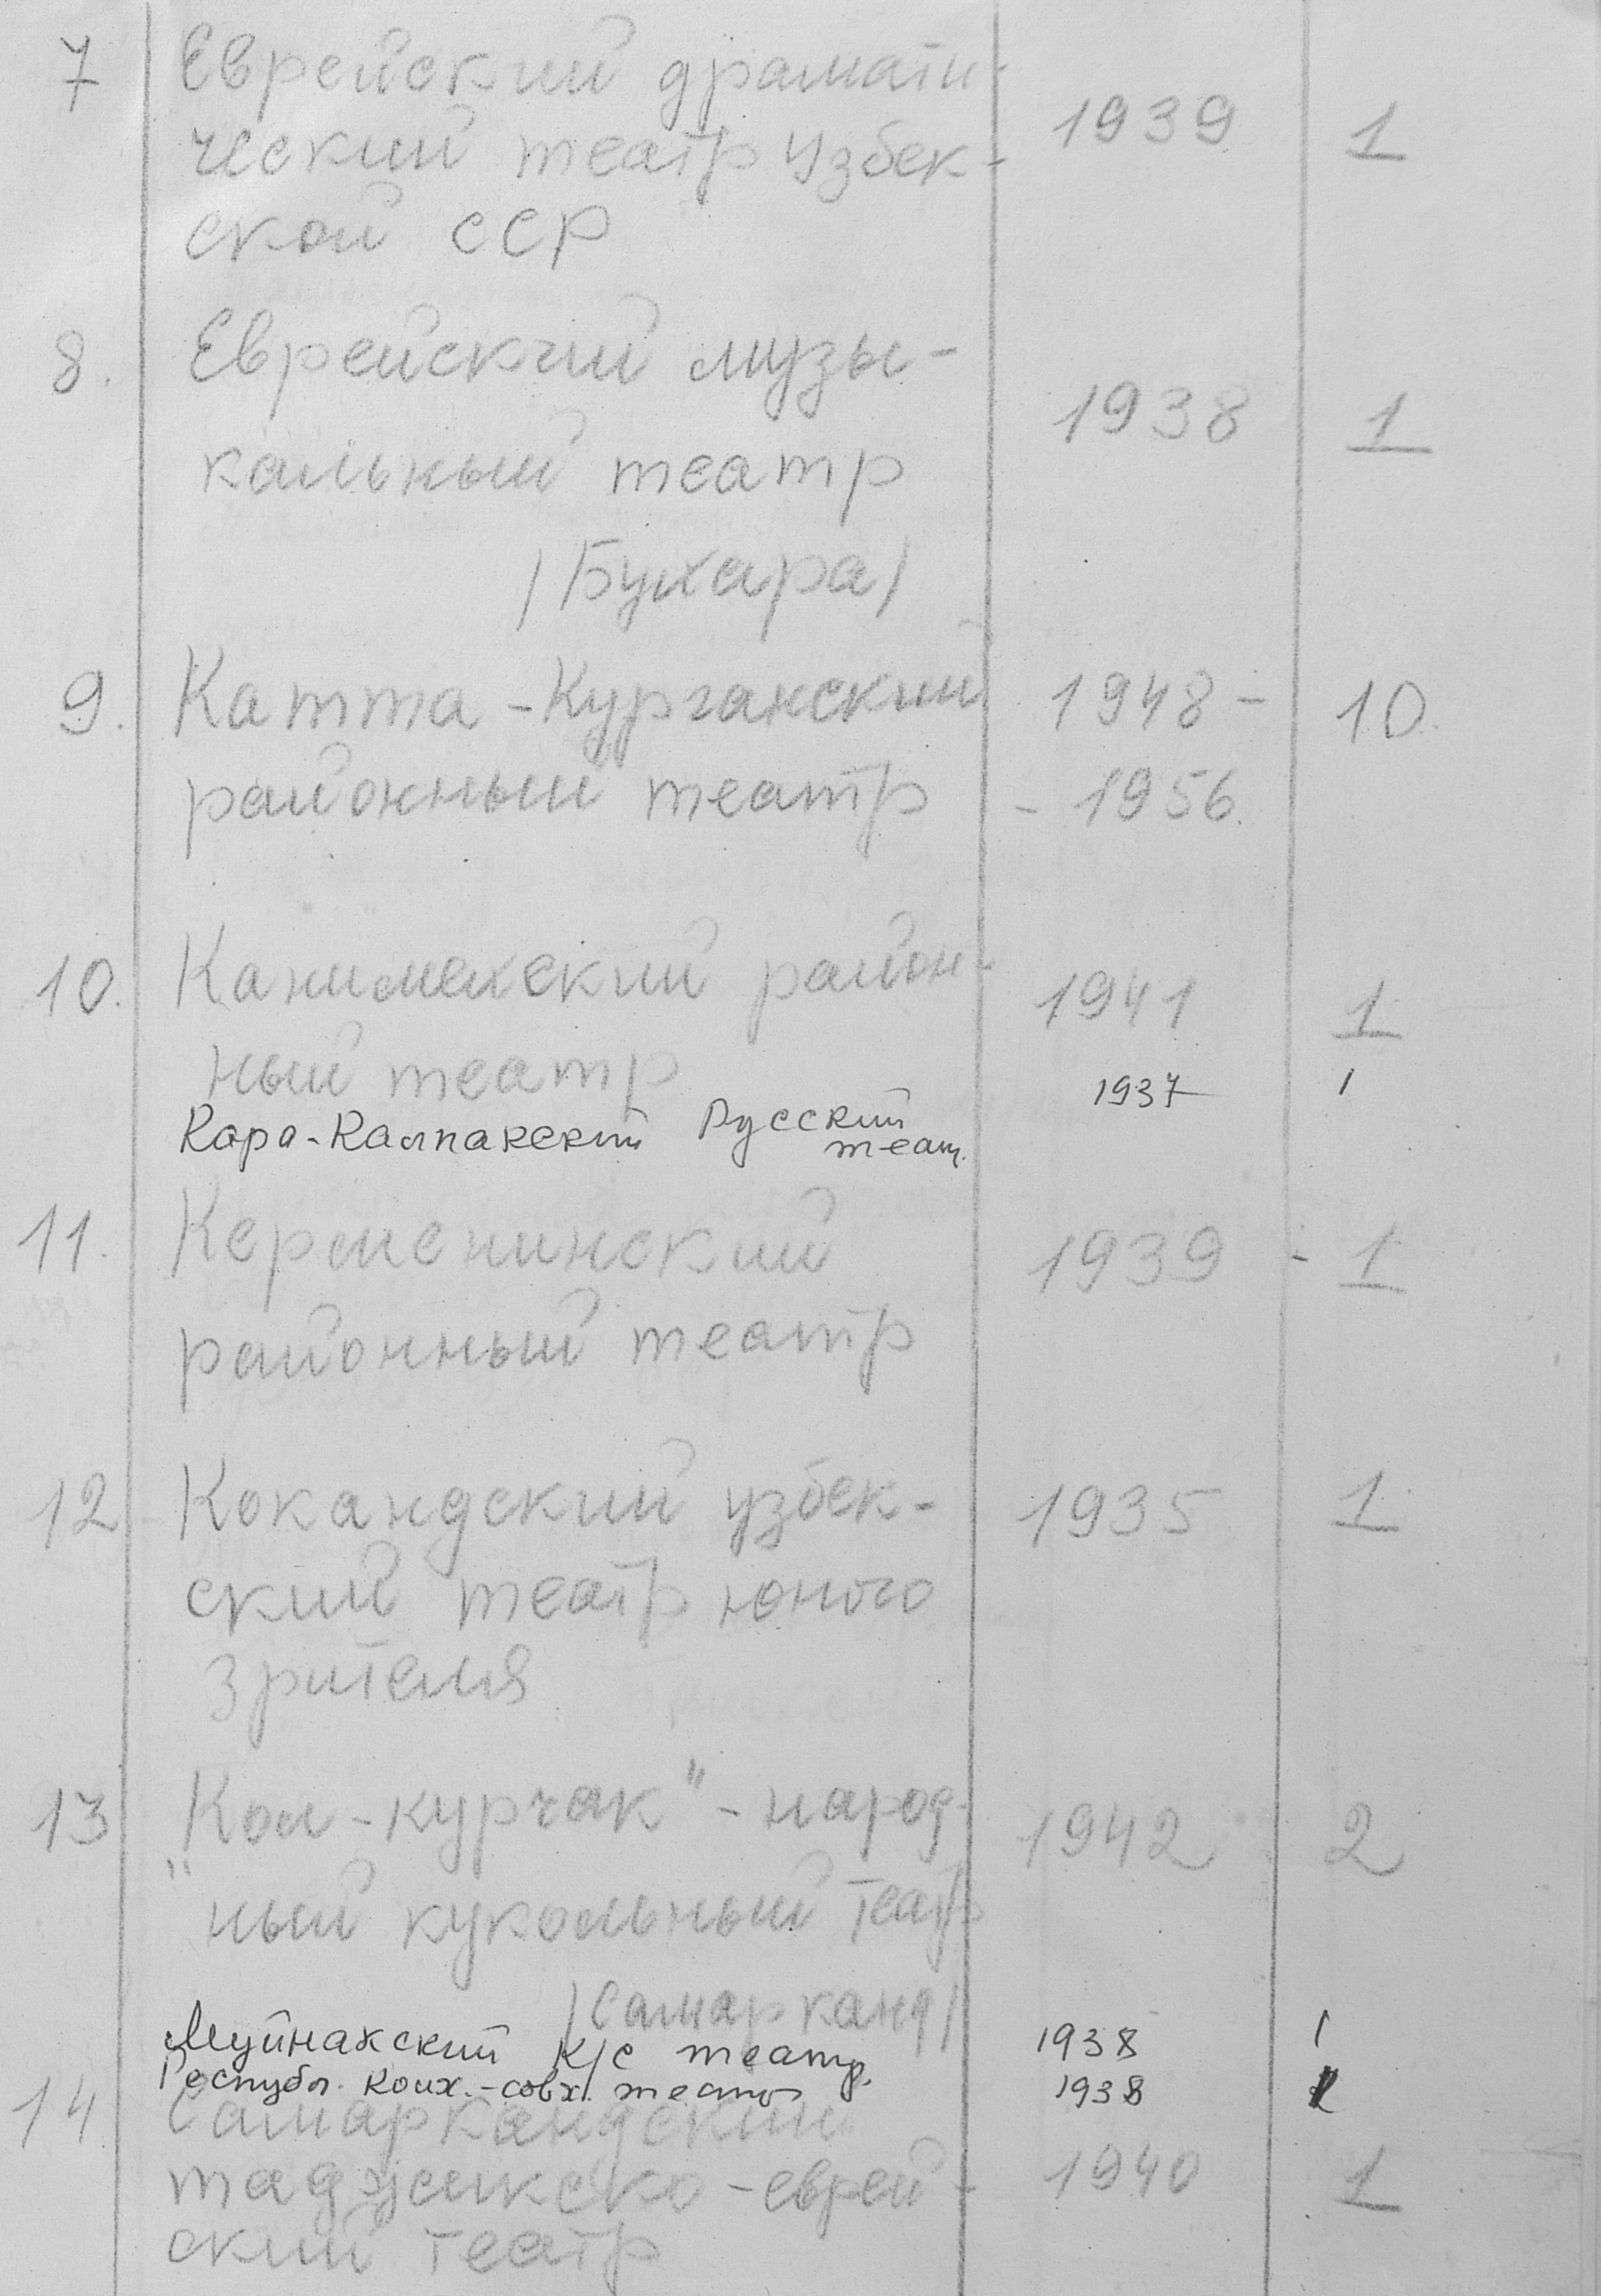 7 Еврейский драмати- 1939 1
ческий театр Узбек-
ской ССР
8. Еврейский музы- 1938 1
кальный театр
/Бухара/
9. Катта-Курганский 1948- 10.
районный театр - 1956.
10. Канимехский район- 1941 1
ный театр
Кара-Калпакский Русский теат. 1937 1
11. Керменинский 1939 - 1
районный театр
12 Кокандский узбек- 1935 1
ский театр юного
зрителя
13 "Кол-курчак" - народ- 1942 2
ный кукольный театр
/Самарканд/
Муйнакский к/с театр. 1938 1
Республ. колх.-совх. театр 1938
14 Самаркандский
таджикско-еврей- 1940 1
ский театр